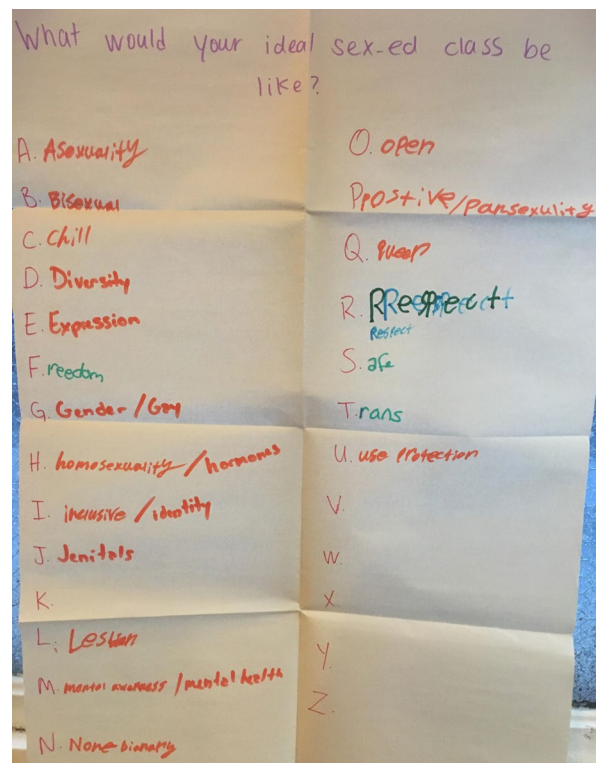 What would your ideal sex-ed class be
like?
A. Asexuality
B. Bisexual
C. Chill
D. Diversity
E. Expression
F. reedom
G. Gender/Gay
H. homosexuality/hormones
I. inclusive/identity
J. Jenitals
K.
L. Lesbian
M. mental awarness/mental health
N. None bianary
O. open
P. postive/pansexulity
Q. queer
R. Respect
Respect
S. afe
T. rans
U. use protection
V.
W.
X
Y.
Z.